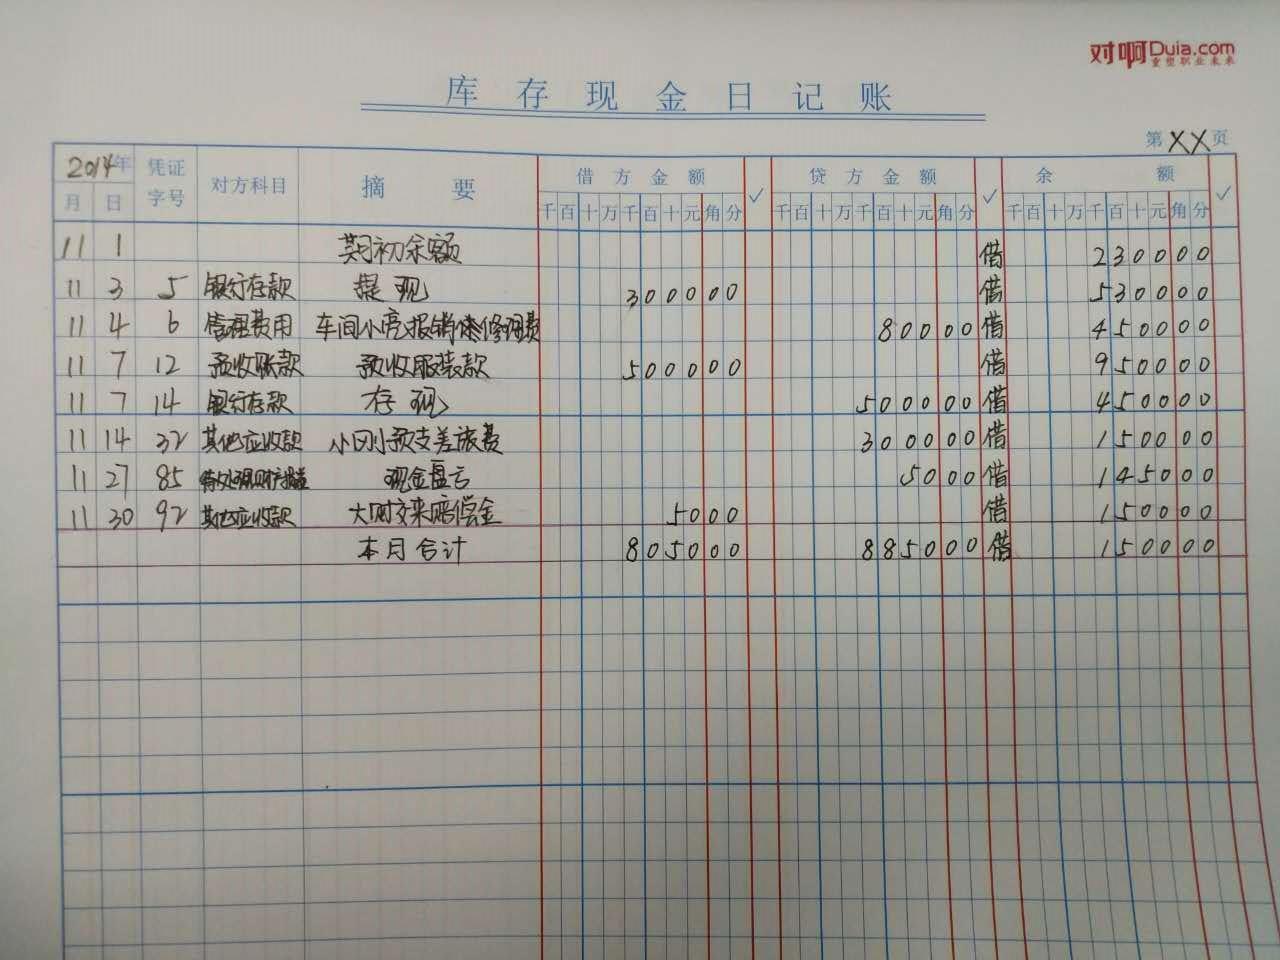 对啊Duia.com
重塑职业未来
库存现金日记账
第XX页
2014年 凭证 对方科目 摘要 借方金额 ✓ 贷方金额 ✓ 余额 ✓
月 日 字号 千百十万千百十元角分 千百十万千百十元角分 千百十万千百十元角分
11 1 期初余额 借 230000
11 3 5 银行存款 提现 300000 借 530000
11 4 6 管理费用 车间小亮报销 修理费 80000 借 450000
11 7 12 预收账款 预收服装款 500000 借 950000
11 7 14 银行存款 存现 500000 借 450000
11 14 32 其他应收款 小刚预支差旅费 300000 借 150000
11 27 85 待处理财产损益 现金盘亏 5000 借 145000
11 30 92 其他应收款 大刚交来赔偿金 5000 借 150000
本月合计 805000 885000 借 150000